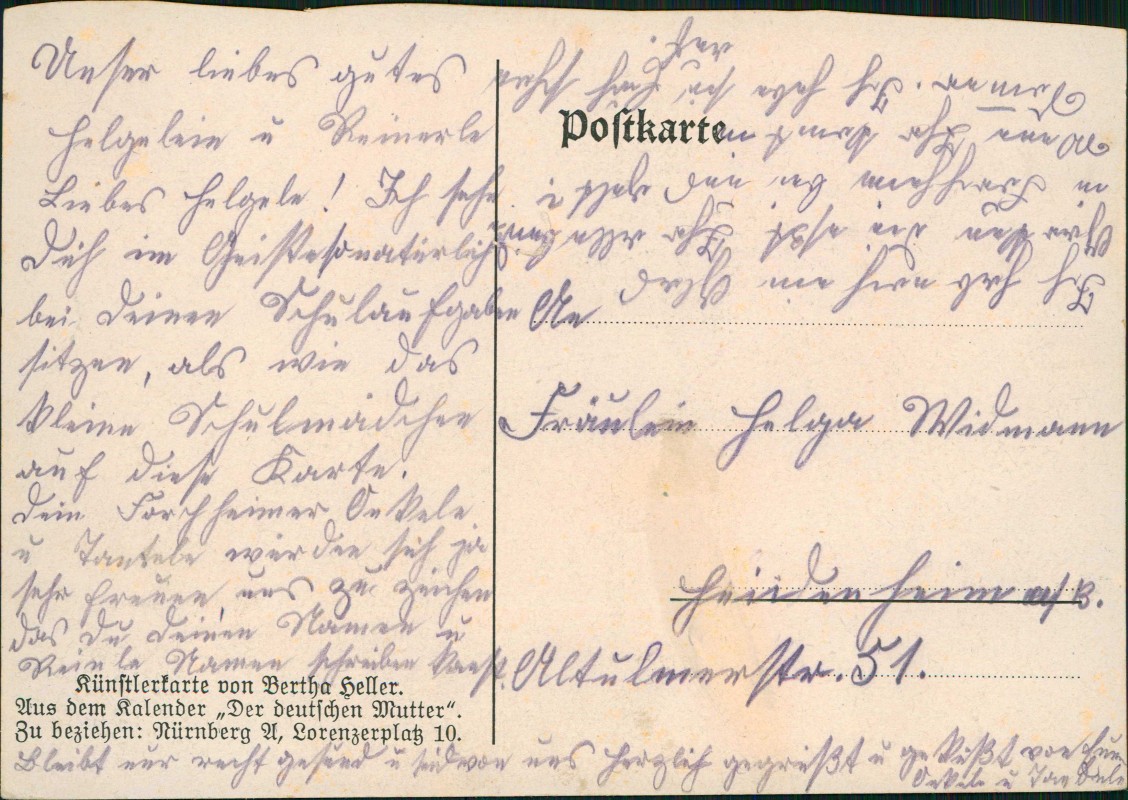 Unser liebes gutes
Helgelein u Reinerle
Liebes Helgele! Ich sehe
Dich im Geiste so natürlich
bei Deinen Schulaufgaben
sitzen, als wie das
kleine Schulmädchen
auf diese Karte.
Dein Forchheimer Onkele
u Tantele würden sich ja
sehr freuen, uns zu zeichen
das Du Deinen Namen u
Reinle Namen schreiben kanst.
Künstlerkarte von Bertha Heller.
Aus dem Kalender „Der deutschen Mutter“.
Zu beziehen: Nürnberg A, Lorenzerplatz 10.
Bleibt nur recht gesund u seid von uns herzlich gegrüßt u geküßt von Eurem
Onkele u Tantele
Postkarte
An
Fräulein Helga Widmann
Heidenheim a/B.
Altulmerstr. 51.
Ich hab auch ein
in Forchheim
wenn Ihr kommt
Ich habe